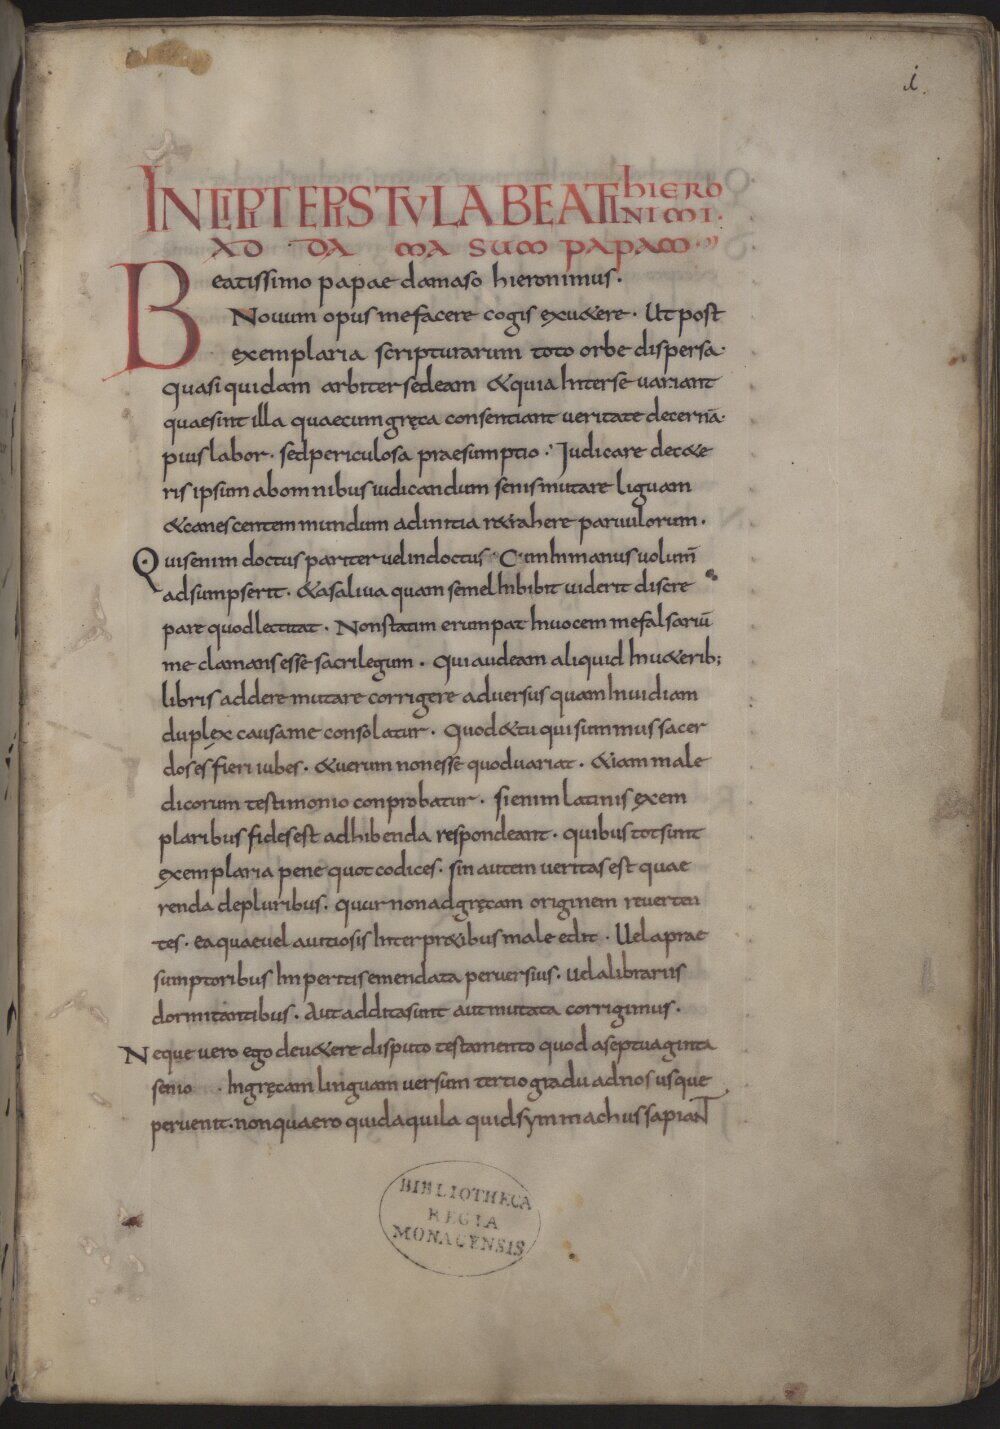 i
INCIPIT EPISTVLA BEATI hIERONIMI.
AD DAMASUM PAPAM
Beatissimo papae damaso hieronimus.
Nouum opus me facere cogis ex u&ere. Ut post
exemplaria scripturarum toto orbe dispersa.
quasi quidam arbiter sedeam &quia Inter se uariant
quae sint illa quae cum gręca consentiant ueritate decernā.
pius labor. sed periculosa praesumptio. Iudicare de c&e
ris ipsum ab omnibus iudicandum senis mutare liguam
&canescentem mundum ad initia r&rahere paruulorum.
Quis enim doctus pariter uel indoctus. Cum In manus uolum̄
adsumpserit. &a saliua quam semel Inbibit uiderit discre
pare quod lectitat. Non statim erumpat In uocem me falsariū
me clamans esse sacrilegum. Qui audeam aliquid In u&erib;
libris addere mutare corrigere aduersus quam Inuidiam
duplex causa me consolatur. Quod &tu qui summus sacer
dos es fieri iubes. &uerum non esse quod uariat. &iam male
dicorum testimonio conprobatur. si enim latinis exem
plaribus fides est adhibenda respondeant. quibus tot sunt
exemplaria pene quot codices. sin autem ueritas est quae
renda de pluribus. quur non ad gręcam originem reuerten
tes. ea quae uel a uitiosis Interpr&ibus male edit. Uel a prae
sumptoribus Inperitis emendata peruersius. uel a librariis
dormitantibus. Aut addita sunt aut mutata corrigimus.
Neque uero ego de u&ere disputo testamento quod a septuaginta
senio . In gręcam linguam uersum tertio gradu ad nos usque
peruenit. non quaero quid aquila quid symmachus sapiaNT
BIBLIOTHECA
REGIA
MONACENSIS